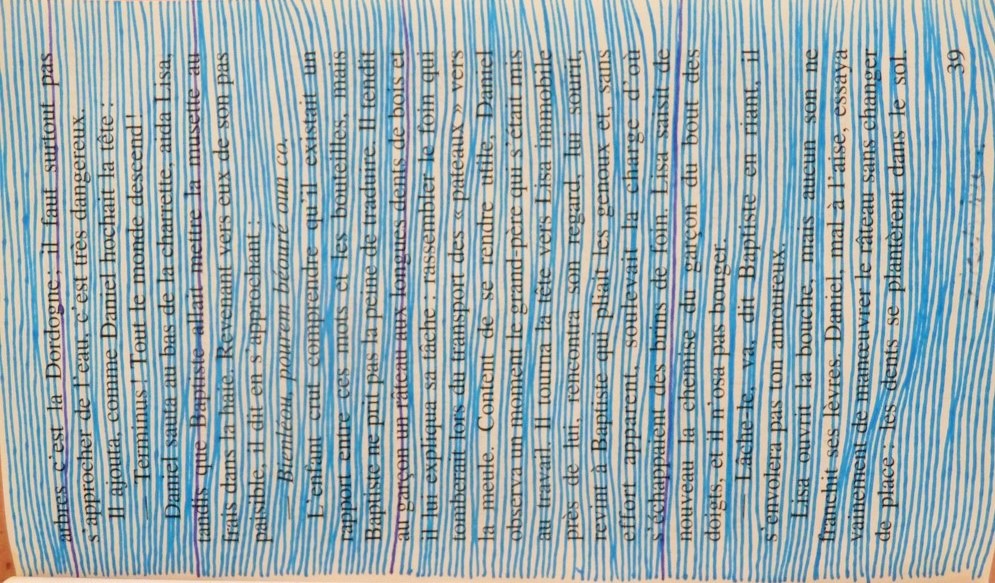 arbres c'est la Dordogne ; il faut surtout pas
s'approcher de l'eau, c'est très dangereux.
Il ajouta, comme Daniel hochait la tête :
— Terminus ! Tout le monde descend !
Daniel sauta au bas de la charrette, aida Lisa,
tandis que Baptiste allait mettre la musette au
frais dans la haie. Revenant vers eux de son pas
paisible, il dit en s'approchant :
— Bientéou, pourem béouré om co.
L'enfant crut comprendre qu'il existait un
rapport entre ces mots et les bouteilles, mais
Baptiste ne prit pas la peine de traduire. Il tendit
au garçon un râteau aux longues dents de bois et
il lui expliqua sa tâche : rassembler le foin qui
tomberait lors du transport des « pateaux » vers
la meule. Content de se rendre utile, Daniel
observa un moment le grand-père qui s'était mis
au travail. Il tourna la tête vers Lisa immobile
près de lui, rencontra son regard, lui sourit,
revint à Baptiste qui pliait les genoux et, sans
effort apparent, soulevait la charge d'où
s'échappaient des brins de foin. Lisa saisit de
nouveau la chemise du garçon du bout des
doigts, et il n'osa pas bouger.
— Lâche-le, va, dit Baptiste en riant, il
s'envolera pas ton amoureux.
Lisa ouvrit la bouche, mais aucun son ne
franchit ses lèvres. Daniel, mal à l'aise, essaya
vainement de manœuvrer le râteau sans changer
de place : les dents se plantèrent dans le sol.
39